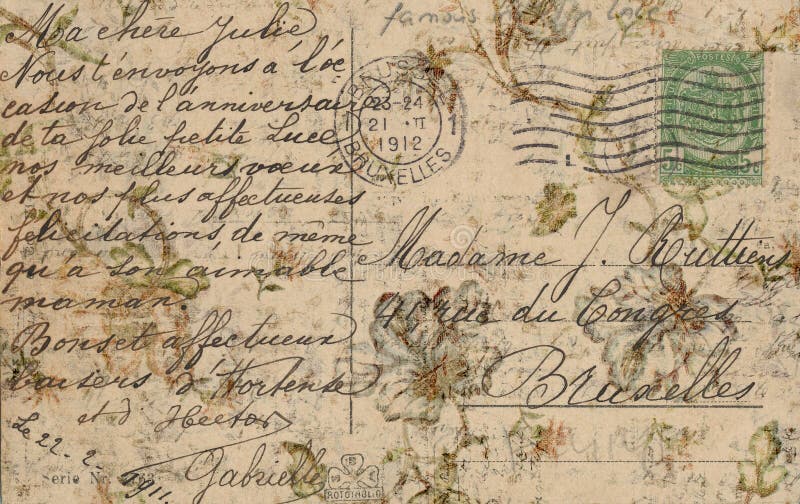 Ma chère Julie
Nous t'envoyons à l'oc-
casion de l'anniversaire
de ta jolie petite Luce
nos meilleurs vœux
et nos plus affectueuses
félicitations, de même
qu'à son aimable
maman.
Bons et affectueux
baisers d'Hortense
et d'Hector
Gabrielle
Le 22-2
1911.
Serie Nr.
ROTOPHOT
BRUXELLES
23-24
21 II
1 1
1912
BRUXELLES
POSTES
5c 5c
Madame J. Ruttiens
41, rue du Congrès
Bruxelles
dreamstime